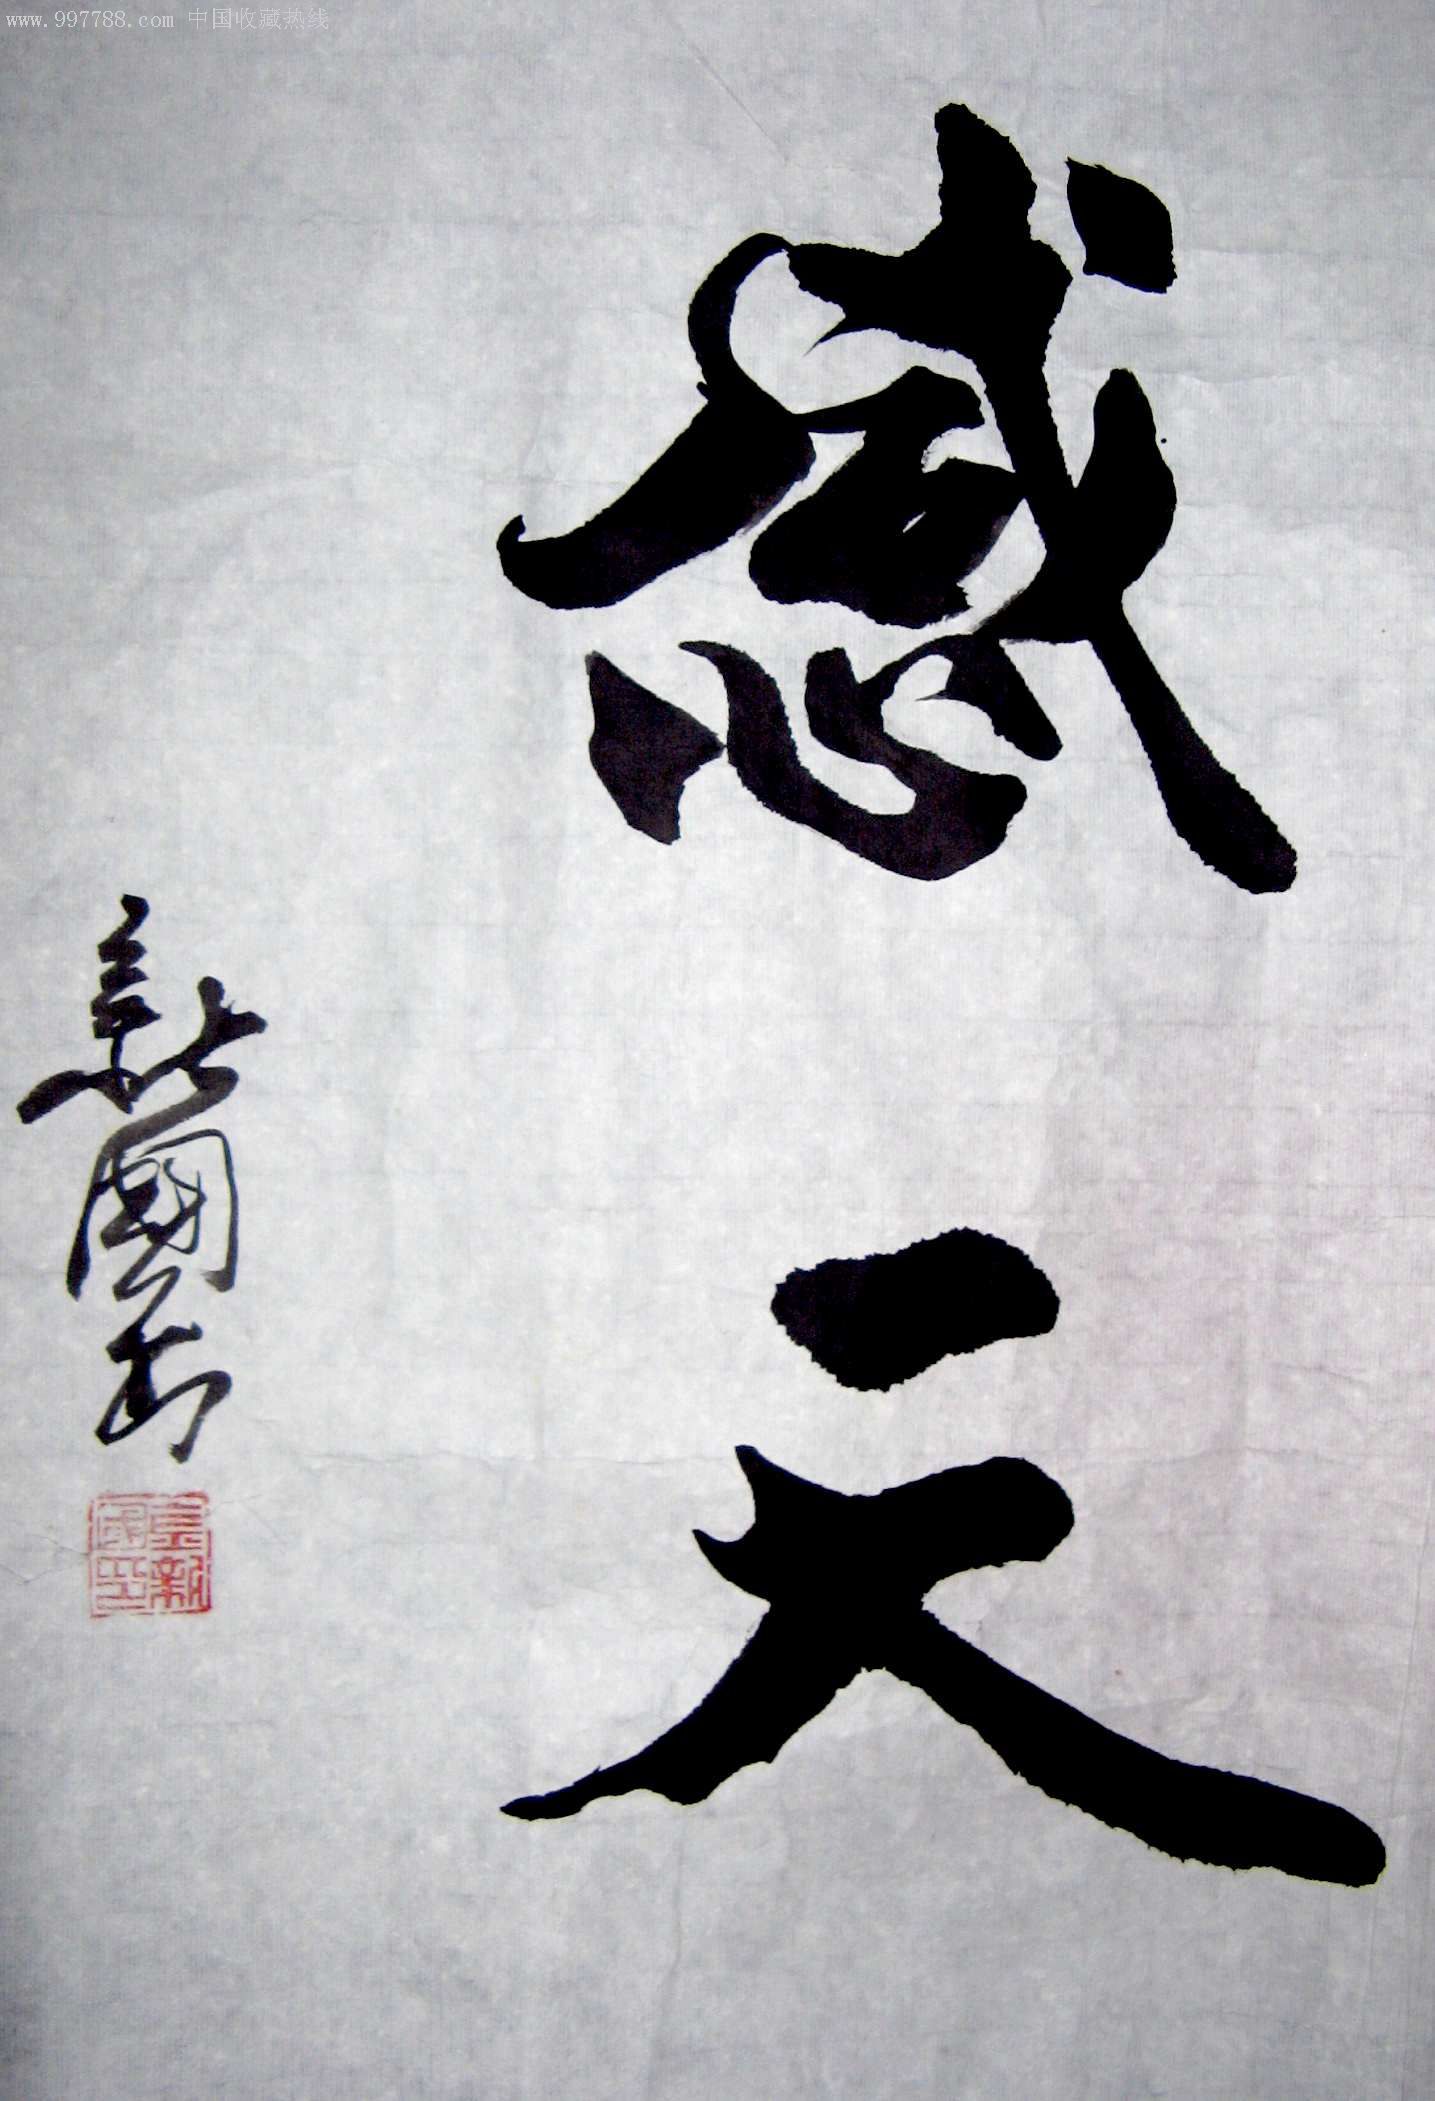 www.997788.com 中国收藏热线
感
天
新國書